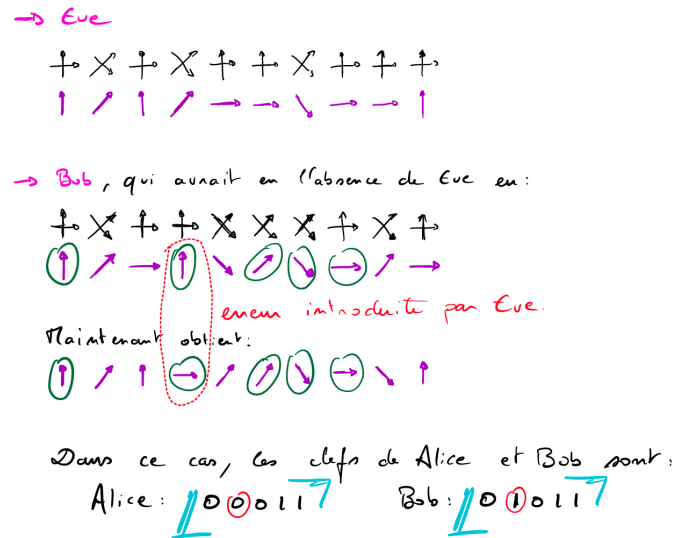 → Eve
→ Bob, qui aurait en l'absence de Eve eu :
erreur introduite par Eve.
Maintenant obtient :
Dans ce cas, les clefs de Alice et Bob sont :
Alice : 0 0 0 1 1 Bob : 0 1 0 1 1